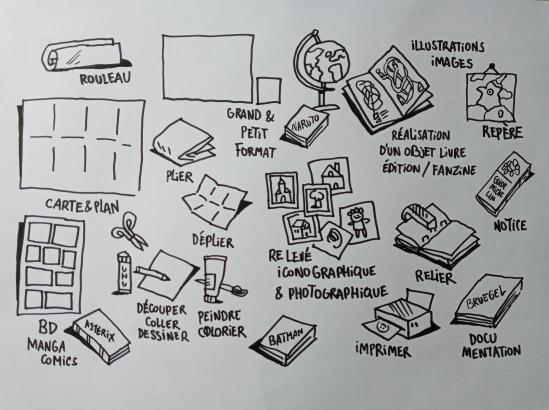 ROULEAU
GRAND &
PETIT
FORMAT
NARUTO
ILLUSTRATIONS
IMAGES
RÉALISATION
D'UN OBJET LIVRE
ÉDITION / FANZINE
REPÈRE
CARTE & PLAN
PLIER
DÉPLIER
RELEVÉ
ICONOGRAPHIQUE
& PHOTOGRAPHIQUE
RELIER
NOTICE
BD
MANGA
COMICS
ASTÉRIX
UHU
DÉCOUPER
COLLER
DESSINER
PEINDRE
COLORIER
BATMAN
IMPRIMER
BRUEGEL
DOCU
MENTATION